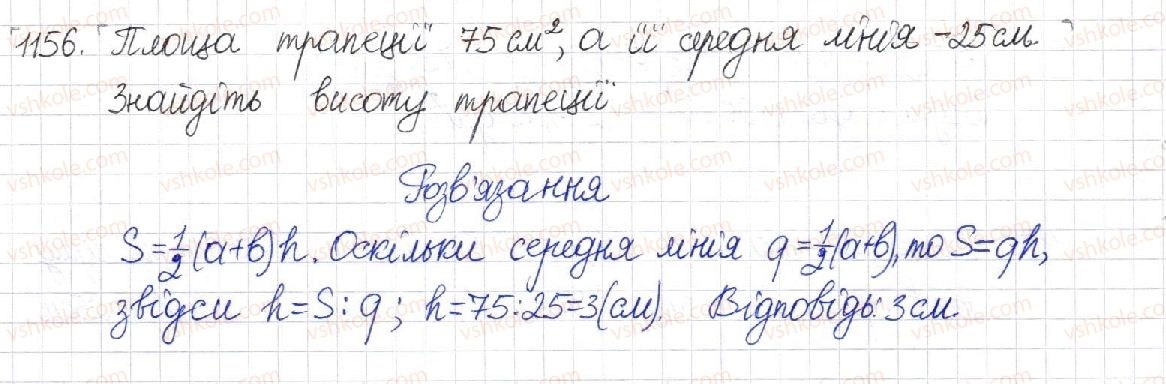 1156. Площа трапеції 75 см², а її середня лінія – 25 см.
Знайдіть висоту трапеції
Розв'язання
S = 1/2 (a+b) h. Оскільки середня лінія q = 1/2 (a+b), то S = qh,
звідси h = S : q ; h = 75 : 25 = 3 (см). Відповідь: 3 см.